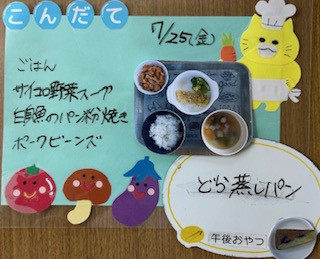 こんだて
7/25(金)
ごはん
サイコロ野菜スープ
白身魚のパン粉焼き
ポークビーンズ
どら蒸しパン
午後おやつ